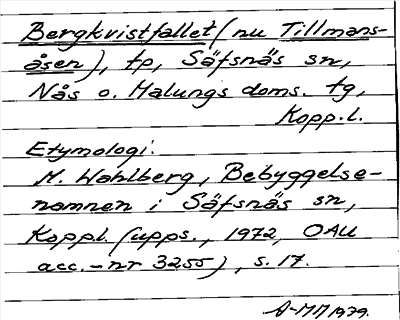 Bergkvistfallet (nu Tillmans-
åsen), tp, Säfsnäs sn,
Nås o. Malungs doms. tg,
Kopp.l.
Etymologi:
M. Wahlberg, Bebyggelse-
namnen i Säfsnäs sn,
Koppl. (upps., 1972, OAU
acc.-nr 3255), s. 17.
A-MM 1979.